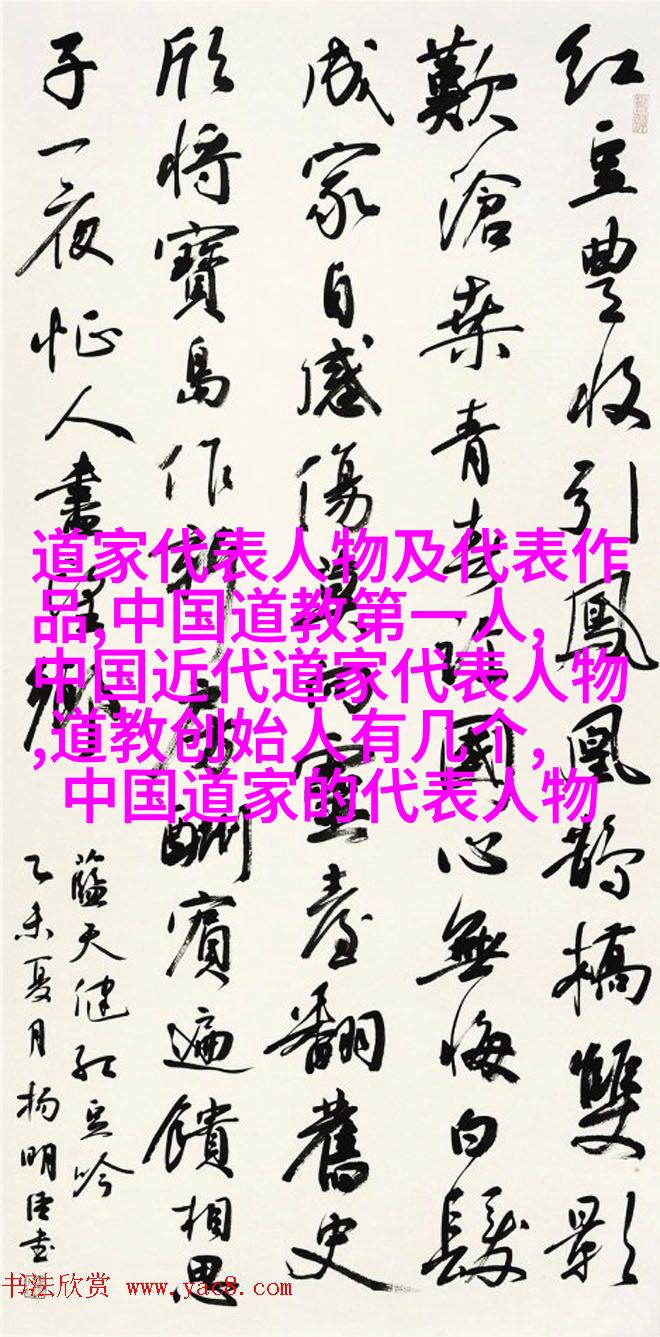 红豆豐收引鳳凰鹊橋雙影
歎滄桑青春國心無悔白髮
成家自感傷臺翻舊史
欣将寶島作新房酬賓遍饋相思
子一夜忙人
蓝天健红豆吟
乙未夏月杨明臣书
道家代表人物及代表作
品,中国道教第一人,
中国近代道家代表人物
,道教创始人有几个,
中国道家的代表人物
书法欣赏 www.yac8.com